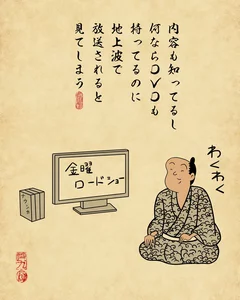 内容も知ってるし
何ならDVDも
持ってるのに
地上波で
放送されると
見てしまう
わくわく
金曜
ロードショー